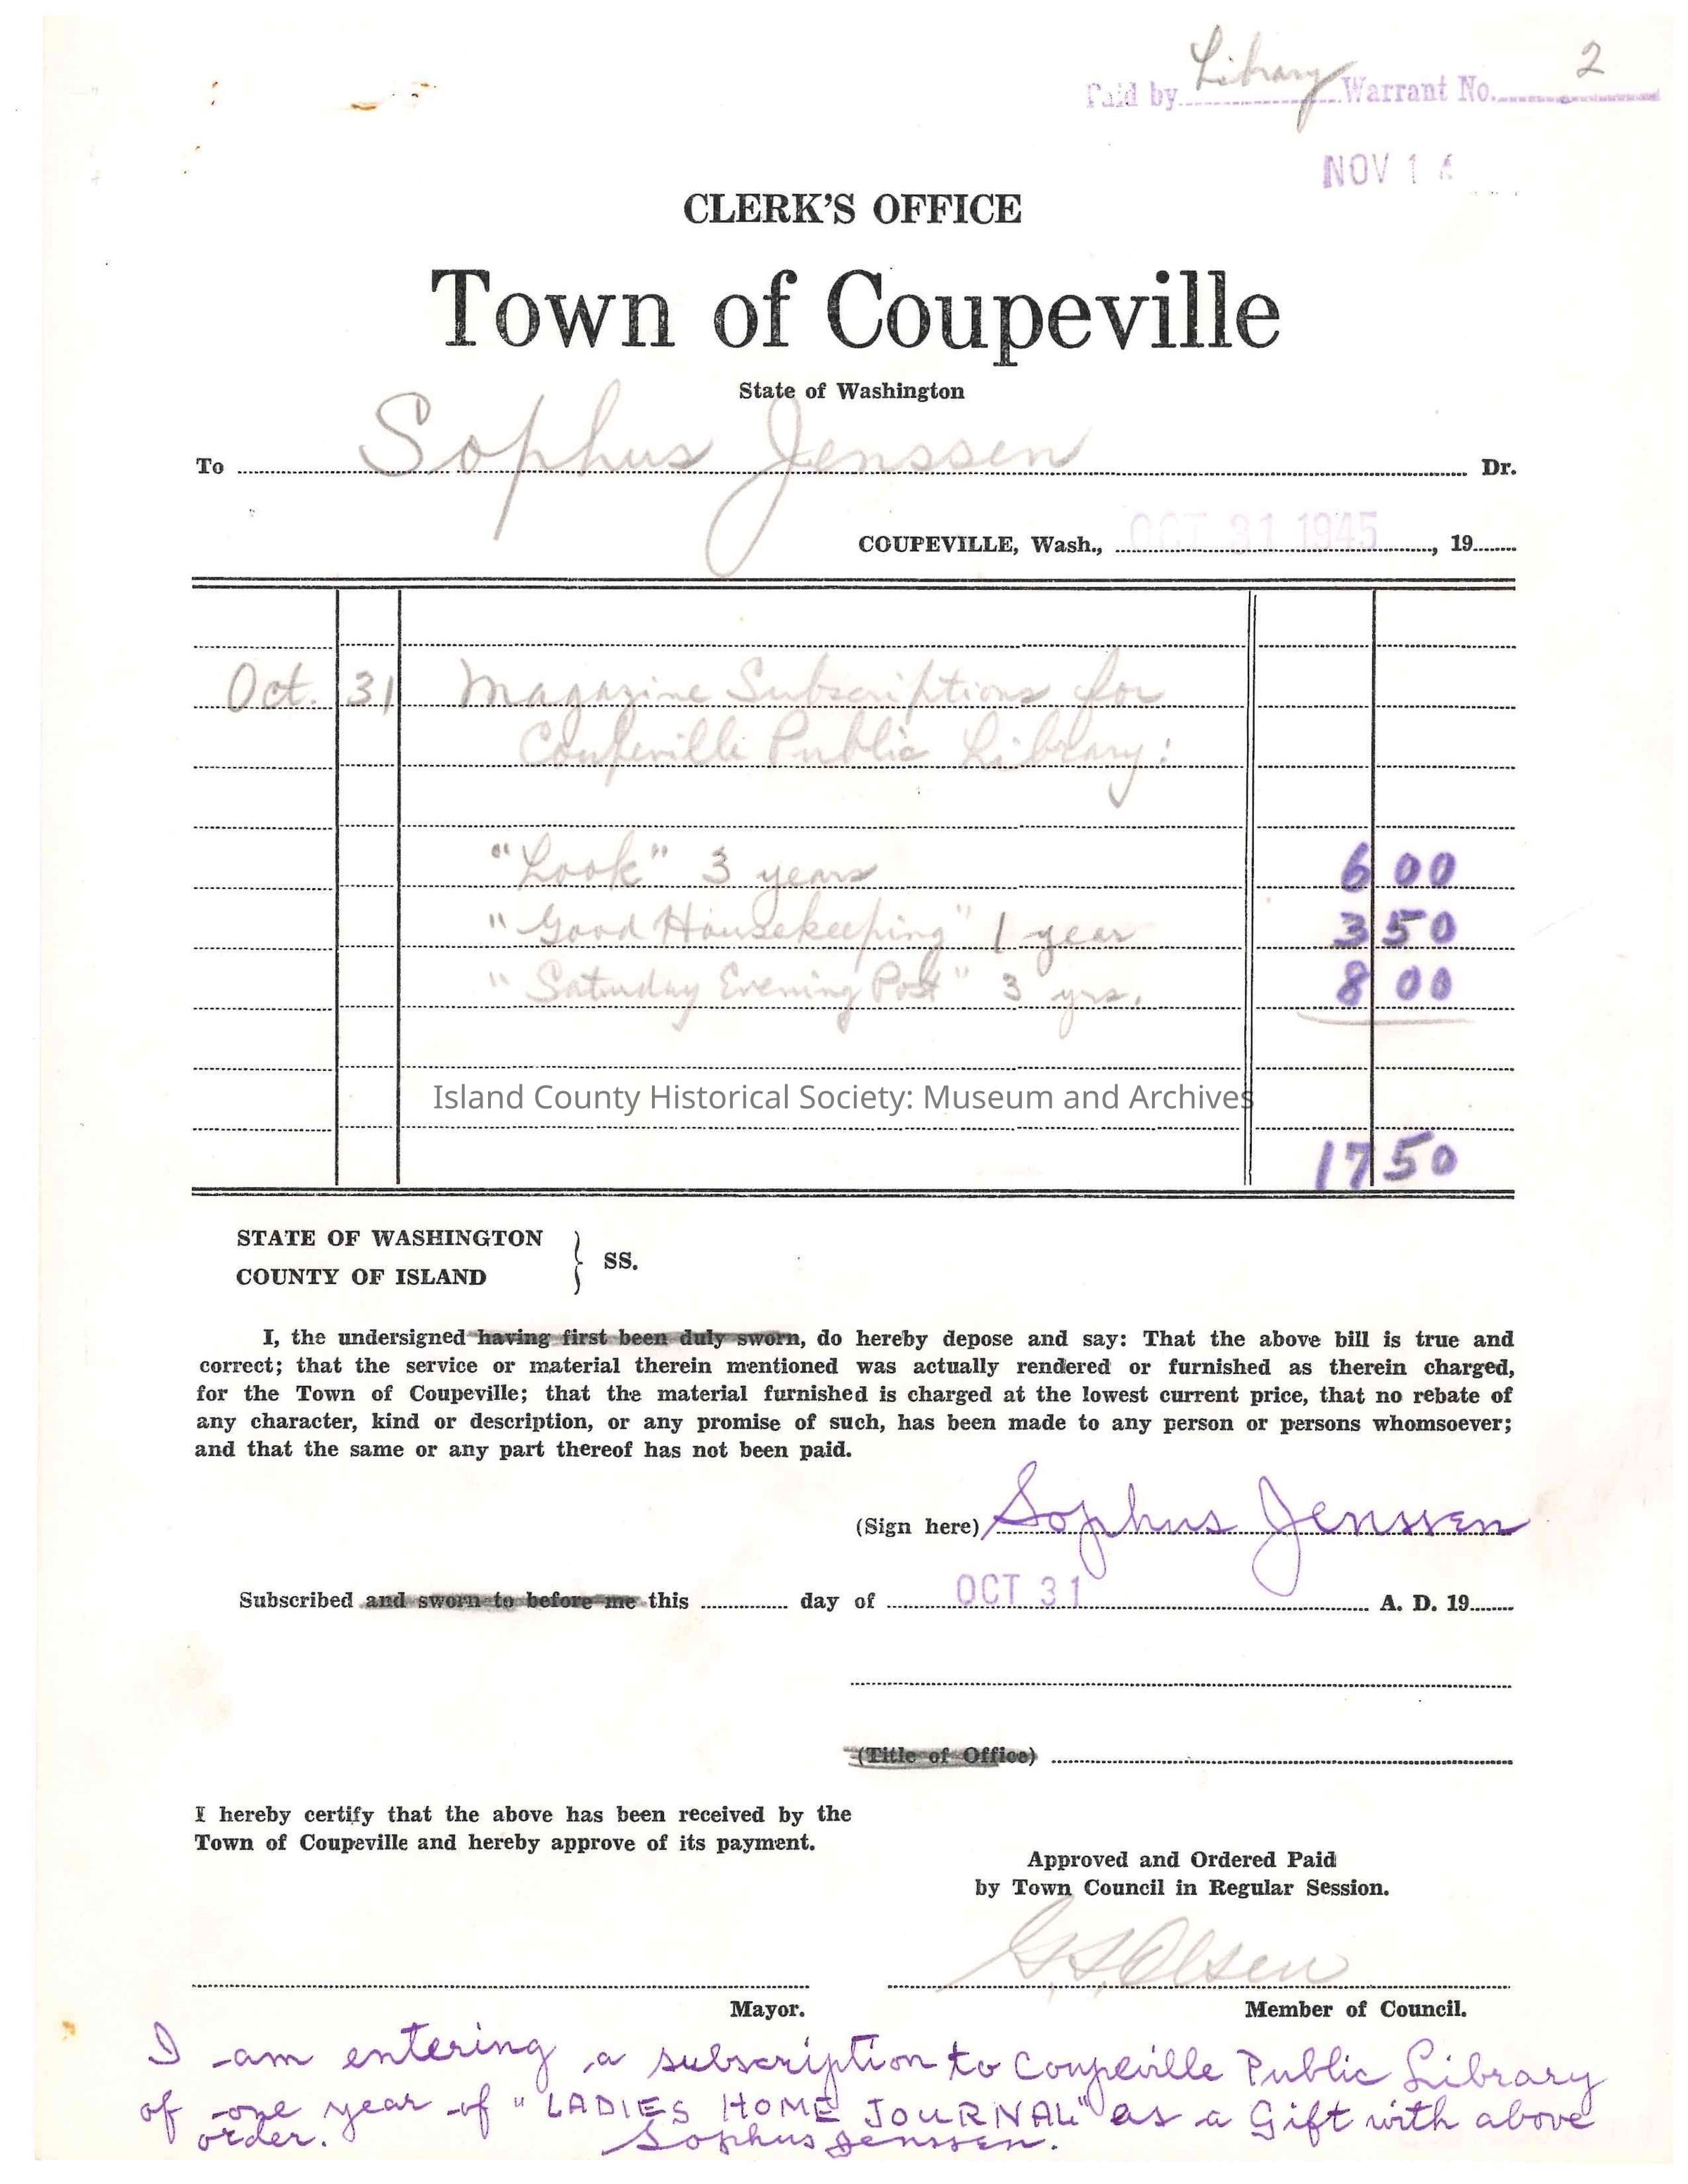 Paid by Library Warrant No. 2
NOV 1
CLERK'S OFFICE
Town of Coupeville
State of Washington
To Sophus Jenssen Dr.
COUPEVILLE, Wash., OCT 31 1945, 19
Oct. 31 Magazine Subscriptions for
Coupeville Public Library:
"Look" 3 years 6 00
"Good Housekeeping" 1 year 3 50
"Saturday Evening Post" 3 yrs. 8 00
Island County Historical Society: Museum and Archives
17 50
STATE OF WASHINGTON
COUNTY OF ISLAND } SS.
I, the undersigned having first been duly sworn, do hereby depose and say: That the above bill is true and
correct; that the service or material therein mentioned was actually rendered or furnished as therein charged,
for the Town of Coupeville; that the material furnished is charged at the lowest current price, that no rebate of
any character, kind or description, or any promise of such, has been made to any person or persons whomsoever;
and that the same or any part thereof has not been paid.
(Sign here) Sophus Jenssen
Subscribed and sworn to before me this day of OCT 31 A. D. 19
(Title of Office)
I hereby certify that the above has been received by the
Town of Coupeville and hereby approve of its payment.
Approved and Ordered Paid
by Town Council in Regular Session.
G.S. Olsen
Mayor.
Member of Council.
I am entering a subscription to Coupeville Public Library
of one year of "LADIES HOME JOURNAL" as a Gift with above
order. Sophus Jenssen.